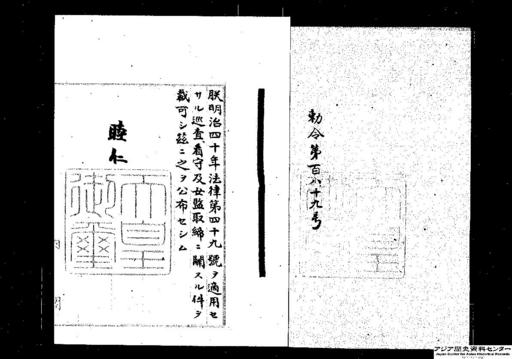 勅令第百八十九号
朕明治四十年法律第四十九號ヲ適用セ
サル巡査看守及女監取締ニ關スル件ヲ
裁可シ玆ニ之ヲ公布セシム
睦仁
天皇
御璽
アジア歴史資料センター
Japan Center for Asian Historical Records